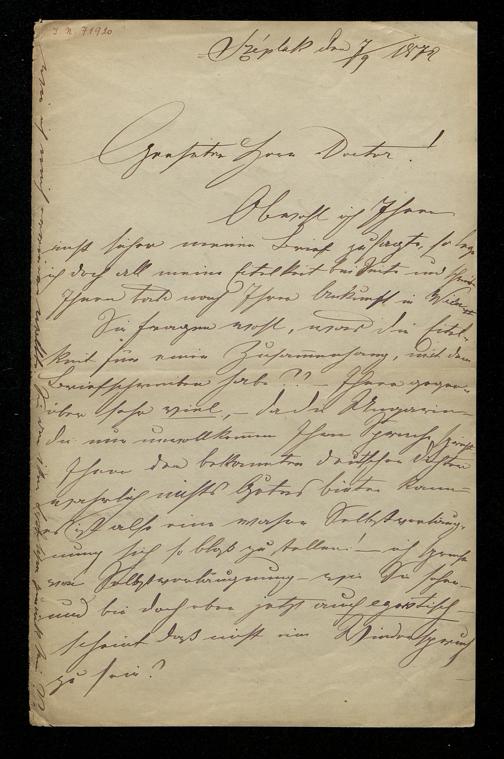 I. N. 71920
Széplak den 7/9 1872
Geehrter Herr Doctor!
Obwohl ich Ihnen
nicht sehr meinen Brief zusagte, so lege
ich doch all meine Eitelkeit bei Seite und schreibe
Ihnen bald nach Ihrer Ankunft in
Sie fragen wohl, was die Eitel-
keit für einen Zusammenhang, mit dem
Briefschreiben habe?? – Ihnen gegen-
über sehr viel, – da die Ungarin –
die nur unvollkommen Ihre Sprache spricht
Ihnen dem bekannten deutschen Dichter
wahrlich nichts Gutes bieten kann –
es ist also eine wahre Selbstverläug-
nung sich so bloß zu stellen! – ich spreche
von Selbstverläugnung – wie Sie sehen –
und bin doch eben jetzt auch egoistisch –
scheint das nicht ein Widerspruch
zu sein?